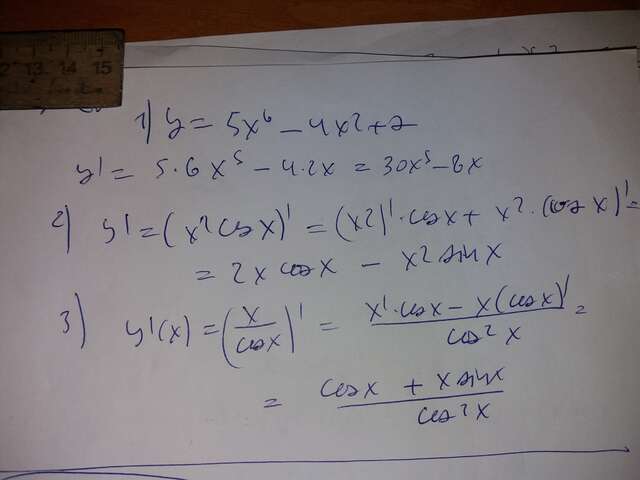 12 13 14 15
1) y = 5x⁶ - 4x² + 2
y' = 5·6x⁵ - 4·2x = 30x⁵ - 8x
2) y' = (x² cos x)' = (x²)'·cos x + x²·(cos x)' =
= 2x cos x - x² sin x
3) y'(x) = (x/cos x)' = (x'·cos x - x(cos x)')/cos² x =
= (cos x + x sin x)/cos² x